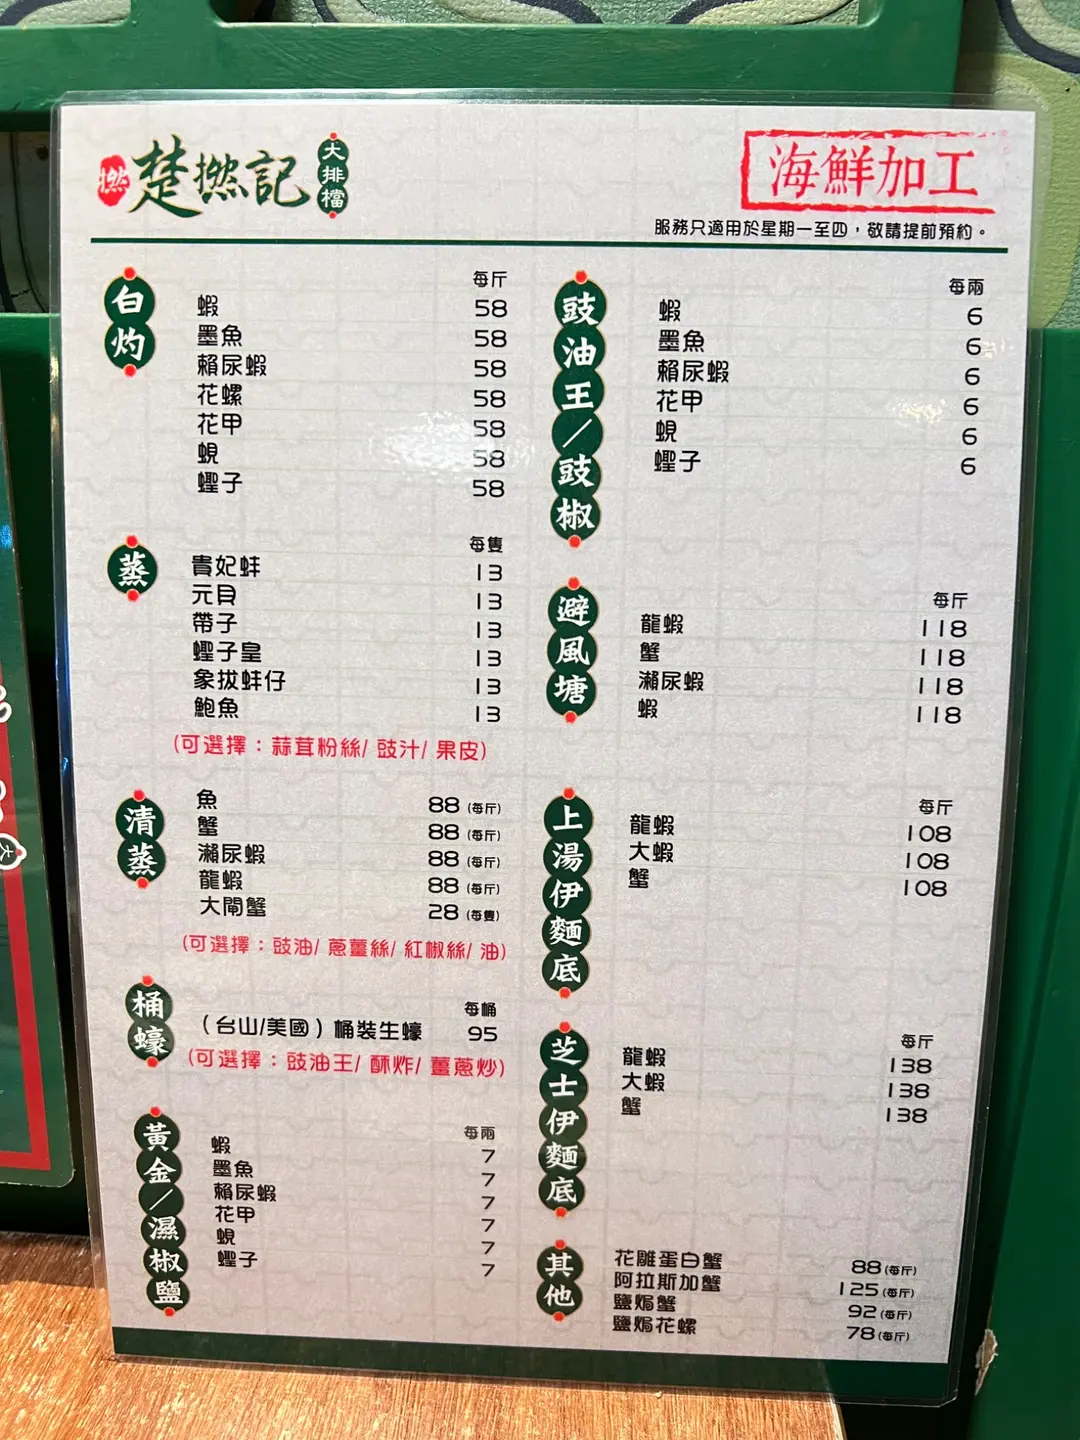 撚 楚撚記 大排檔
海鮮加工
服務只適用於星期一至四，敬請提前預約。
白灼
每斤
蝦 58
墨魚 58
賴尿蝦 58
花螺 58
花甲 58
蜆 58
蟶子 58
蒸
每隻
貴妃蚌 13
元貝 13
帶子 13
蟶子皇 13
象拔蚌仔 13
鮑魚 13
(可選擇：蒜茸粉絲/ 豉汁/ 果皮)
清蒸
魚 88 (每斤)
蟹 88 (每斤)
瀨尿蝦 88 (每斤)
龍蝦 88 (每斤)
大閘蟹 28 (每隻)
(可選擇：豉油/ 蔥薑絲/ 紅椒絲/ 油)
桶蠔
每桶
（台山/美國）桶裝生蠔 95
(可選擇：豉油王/ 酥炸/ 薑蔥炒)
黃金／濕椒鹽
每兩
蝦 7
墨魚 7
賴尿蝦 7
花甲 7
蜆 7
蟶子 7
豉油王／豉椒
每兩
蝦 6
墨魚 6
賴尿蝦 6
花甲 6
蜆 6
蟶子 6
避風塘
每斤
龍蝦 118
蟹 118
瀨尿蝦 118
蝦 118
上湯伊麵底
每斤
龍蝦 108
大蝦 108
蟹 108
芝士伊麵底
每斤
龍蝦 138
大蝦 138
蟹 138
其他
花雕蛋白蟹 88 (每斤)
阿拉斯加蟹 125 (每斤)
鹽焗蟹 92 (每斤)
鹽焗花螺 78 (每斤)